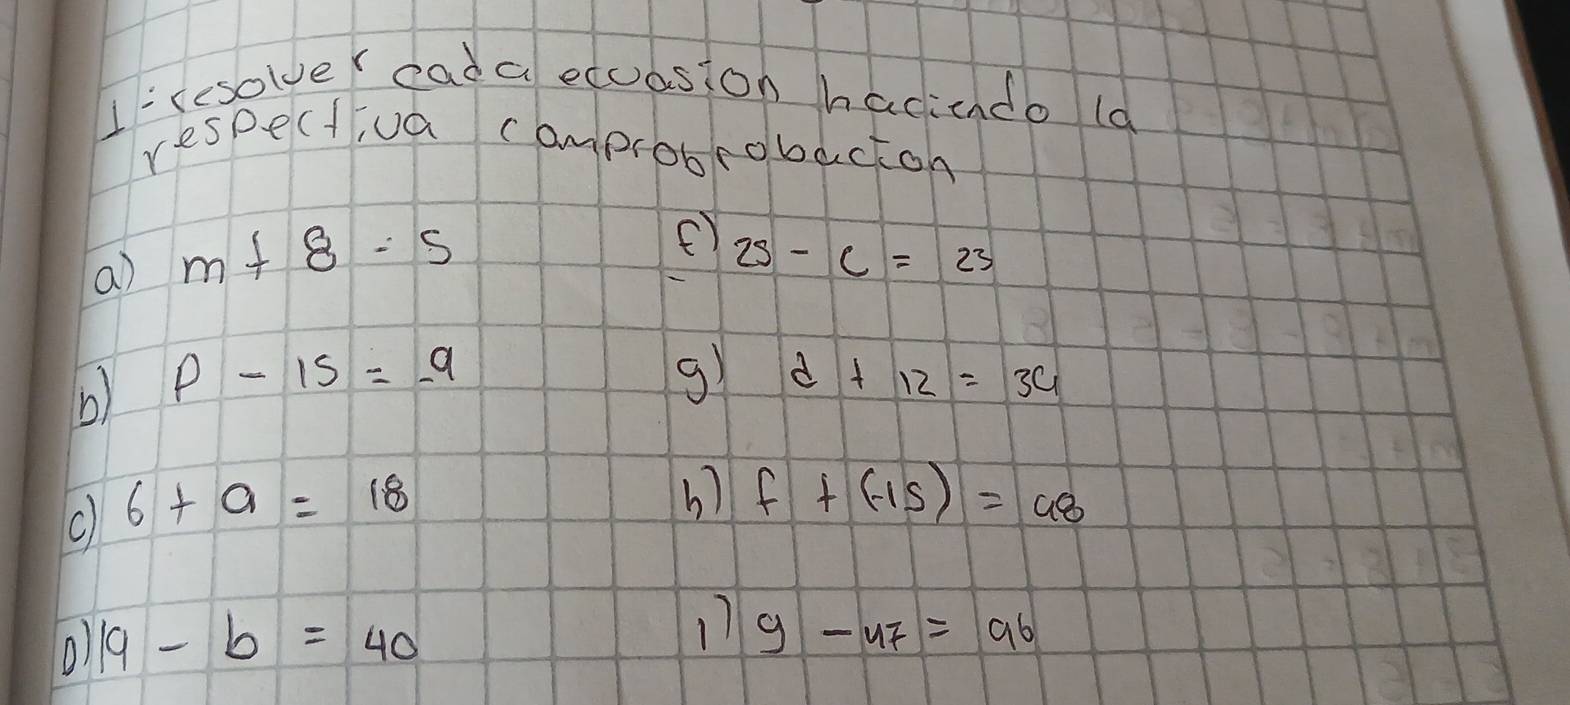 1= resolver cada ecuasion haciendo la
respectiva comprobrobacion
a) m + 8 = 5
f) 25 - c = 23
b) p - 15 = -9
g) d + 12 = 34
c) 6 + a = 18
h) f + (-15) = 98
D) 19 - b = 40
i) g - 47 = 96